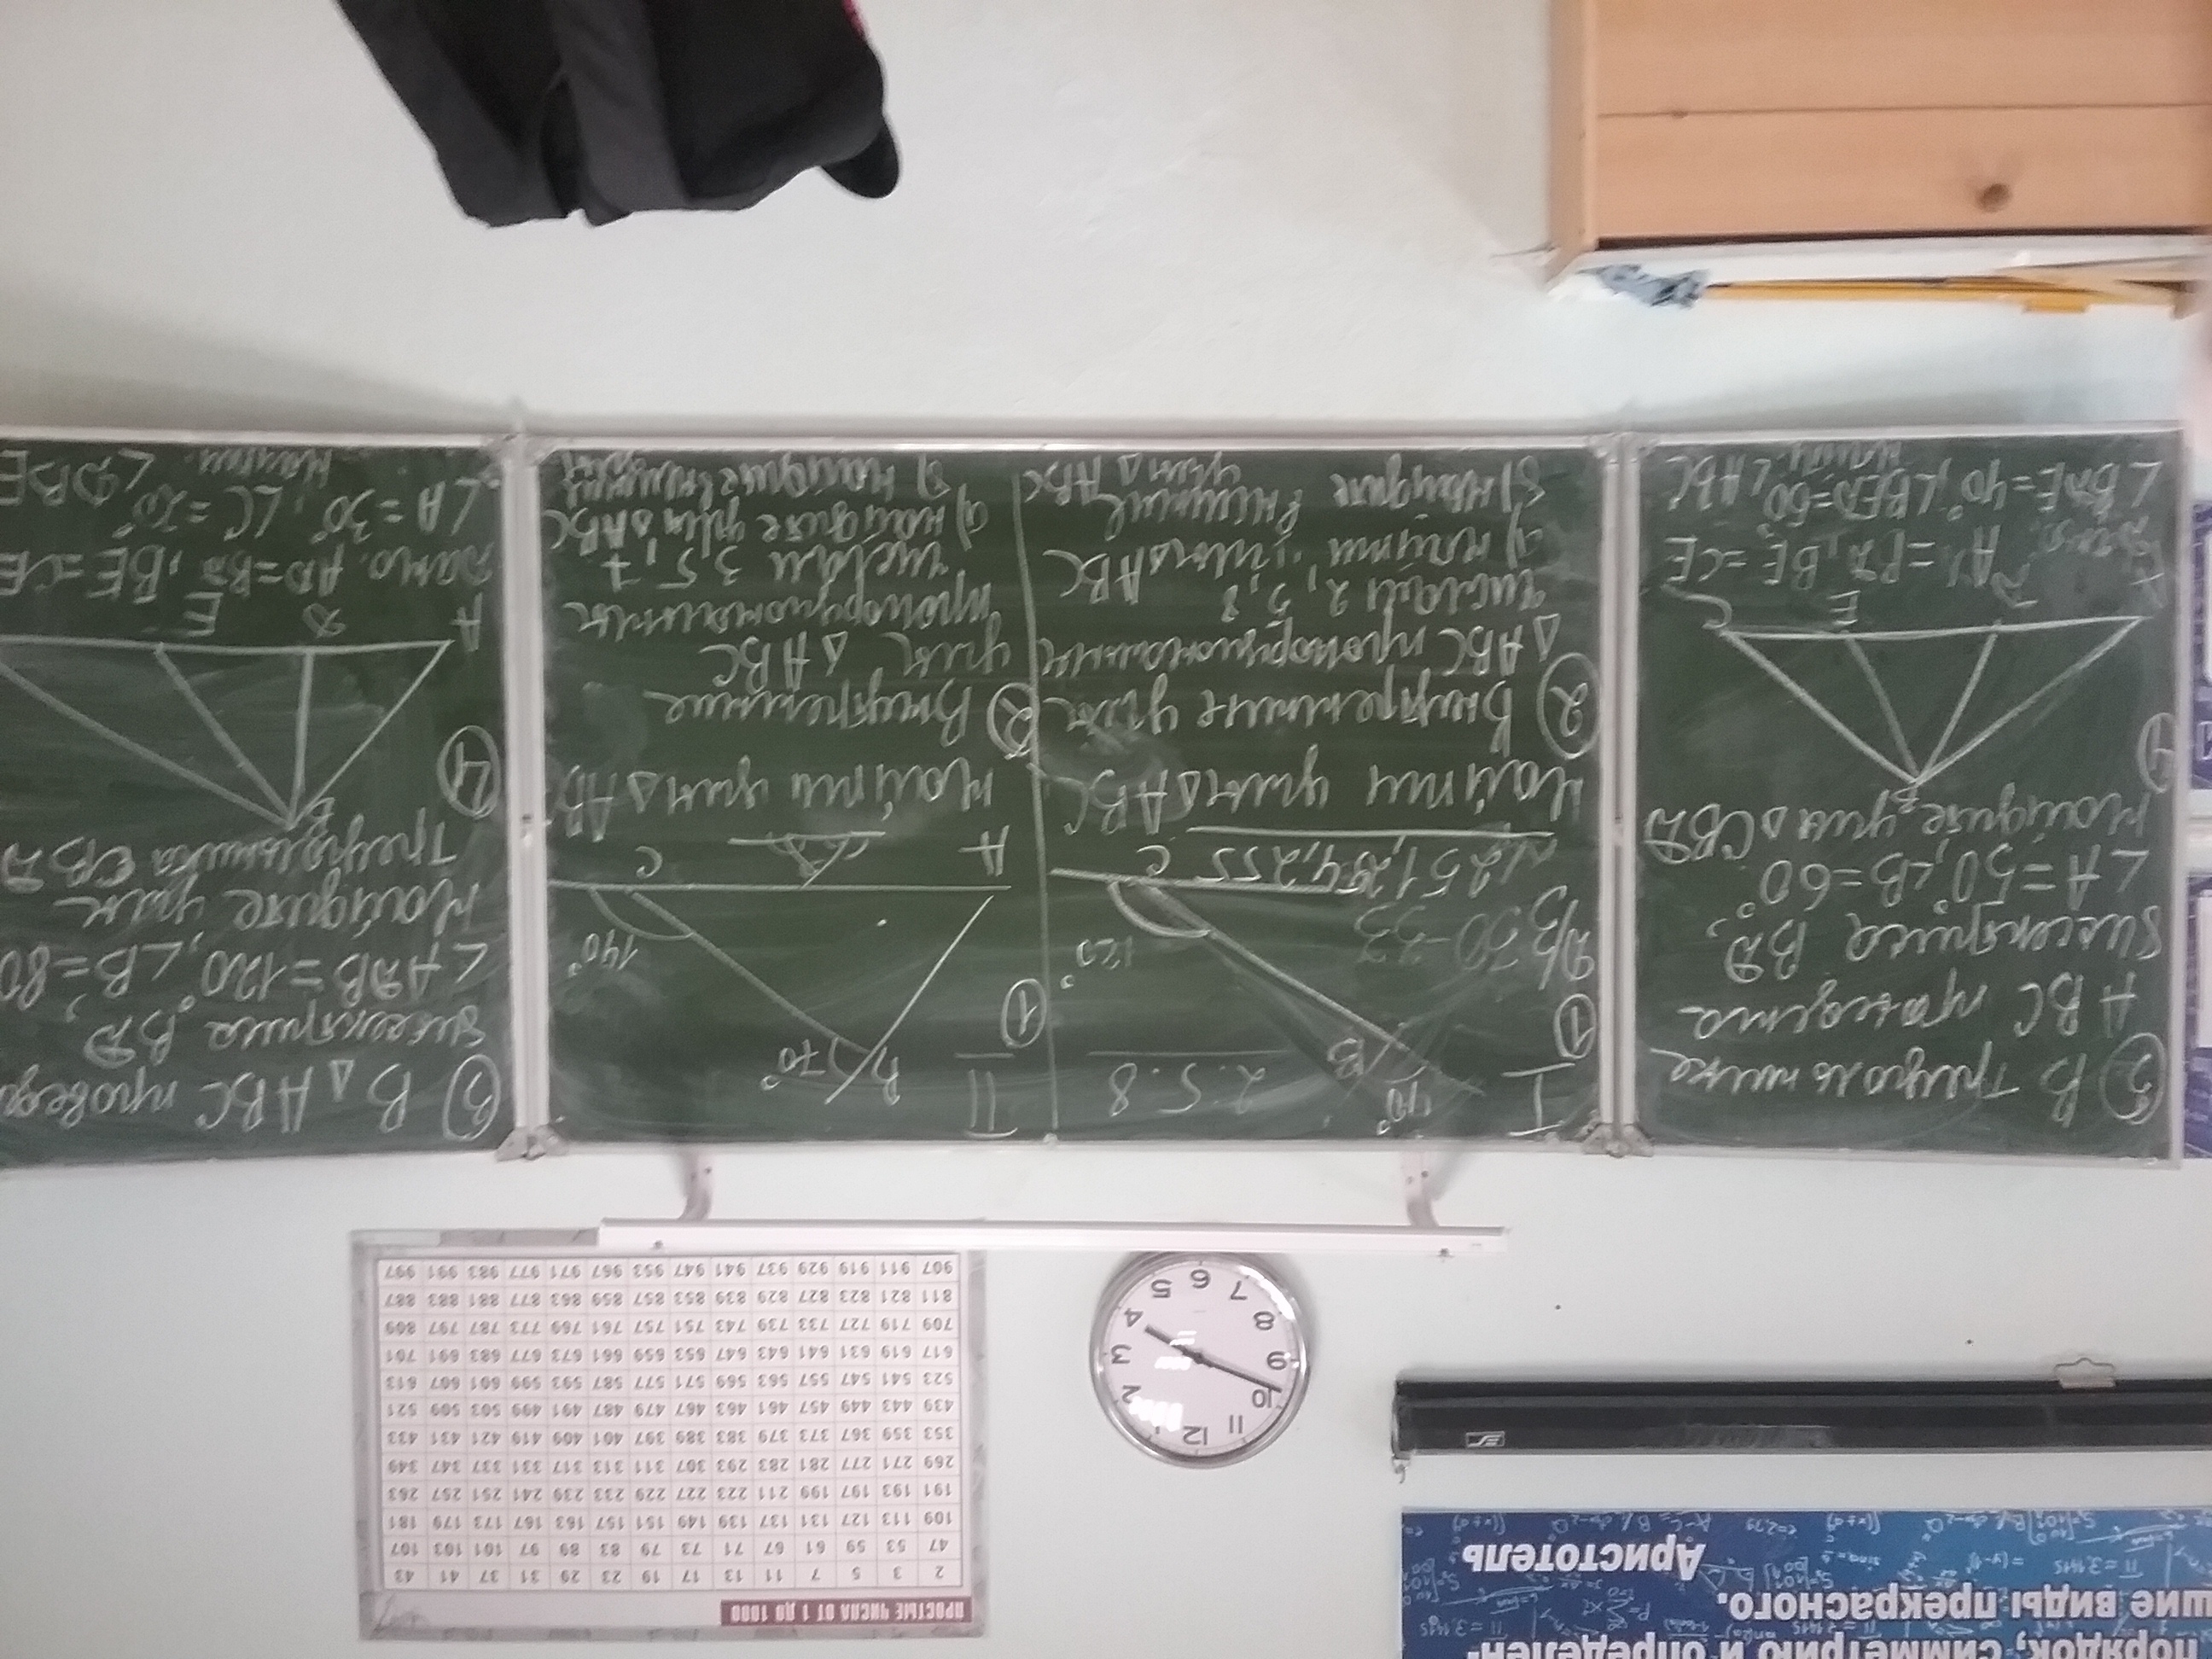 порядок, симметрию и определен
шие виды прекрасного.
Аристотель
12
11
10
9
8
7
6
5
4
3
2
ПРОСТЫЕ ЧИСЛА ОТ 1 ДО 1000
2 3 5 7 11 13 17 19 23 29 31 37 41 43
47 53 59 61 67 71 73 79 83 89 97 101 103 107
109 113 127 131 137 139 149 151 157 163 167 173 179 181
191 193 197 199 211 223 227 229 233 239 241 251 257 263
269 271 277 281 283 293 307 311 313 317 331 337 347 349
353 359 367 373 379 383 389 397 401 409 419 421 431 433
439 443 449 457 461 463 467 479 487 491 499 503 509 521
523 541 547 557 563 569 571 577 587 593 599 601 607 613
617 619 631 641 643 647 653 659 661 673 677 683 691 701
709 719 727 733 739 743 751 757 761 769 773 787 797 809
811 821 823 827 829 839 853 857 859 863 877 881 883 887
907 911 919 929 937 941 947 953 967 971 977 983 991 997
③ В треугольнике
ABC проведена
биссектриса BD,
∠A=50°, ∠B=60°
Найдите углы △CBD
④
B
E C
Дано: AD=BD, BE=CE
∠BDE=40°, ∠BED=60°
Найти: ∠ABC
I
70°
B
2.5.8
①
Д/з 30-33
120°
№251,254,255
C
Найти углы △ABC
② Внутренние углы
△ABC пропорциональны
числам 2, 5, 8
а) найти углы △ABC
б) найдите внешние
углы △ABC
II
①
B 70°
140°
A C
Найти углы △AB
② Внутренние
углы △ABC
пропорциональны
числам 3 5, 7
а) найдите углы △ABC
б) найдите внешние
③ В △ABC проведе
биссектриса BD,
∠ADB=120°, ∠B=80
Найдите углы
треугольника CBD
④
B
A D E
Дано: AD=BD, BE=CE
∠A=30°, ∠C=20°
Найти: ∠DBE